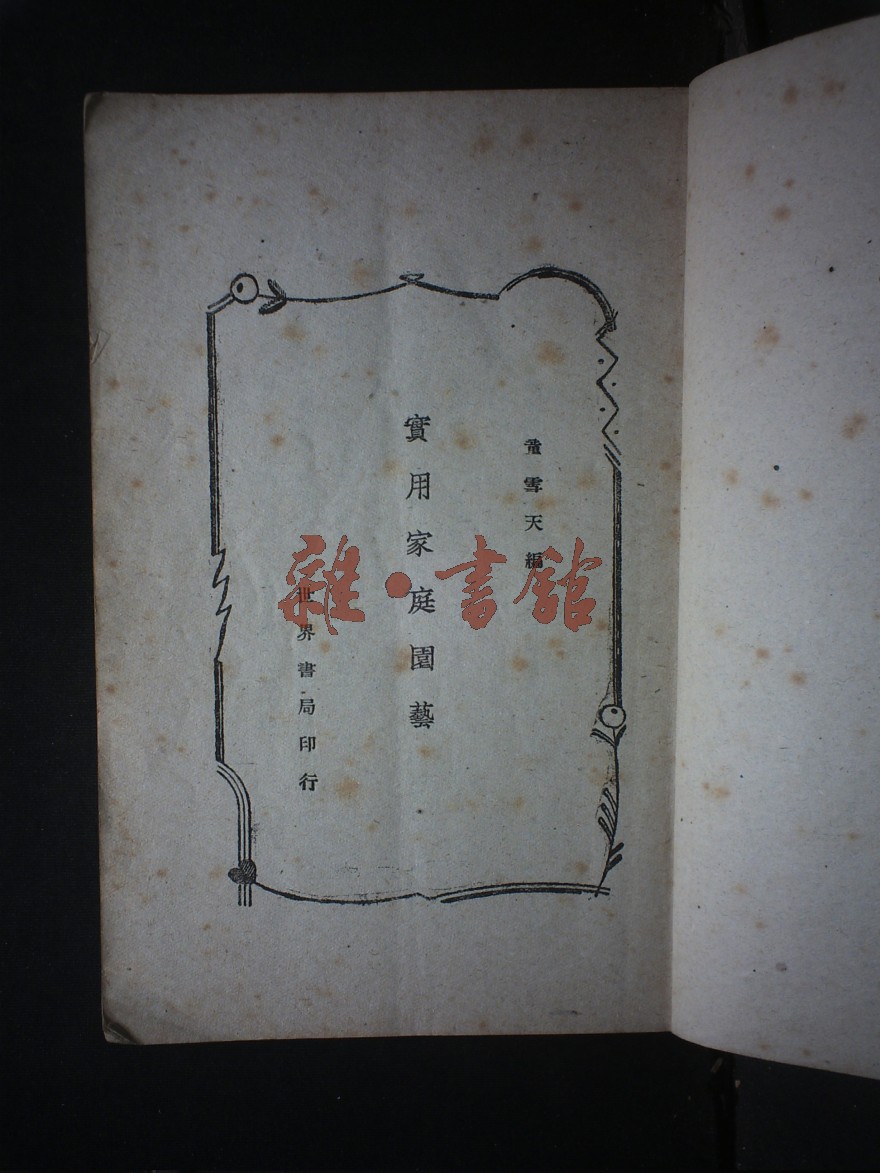 雪天編
實用家庭園藝
世界書局印行
雜·書館